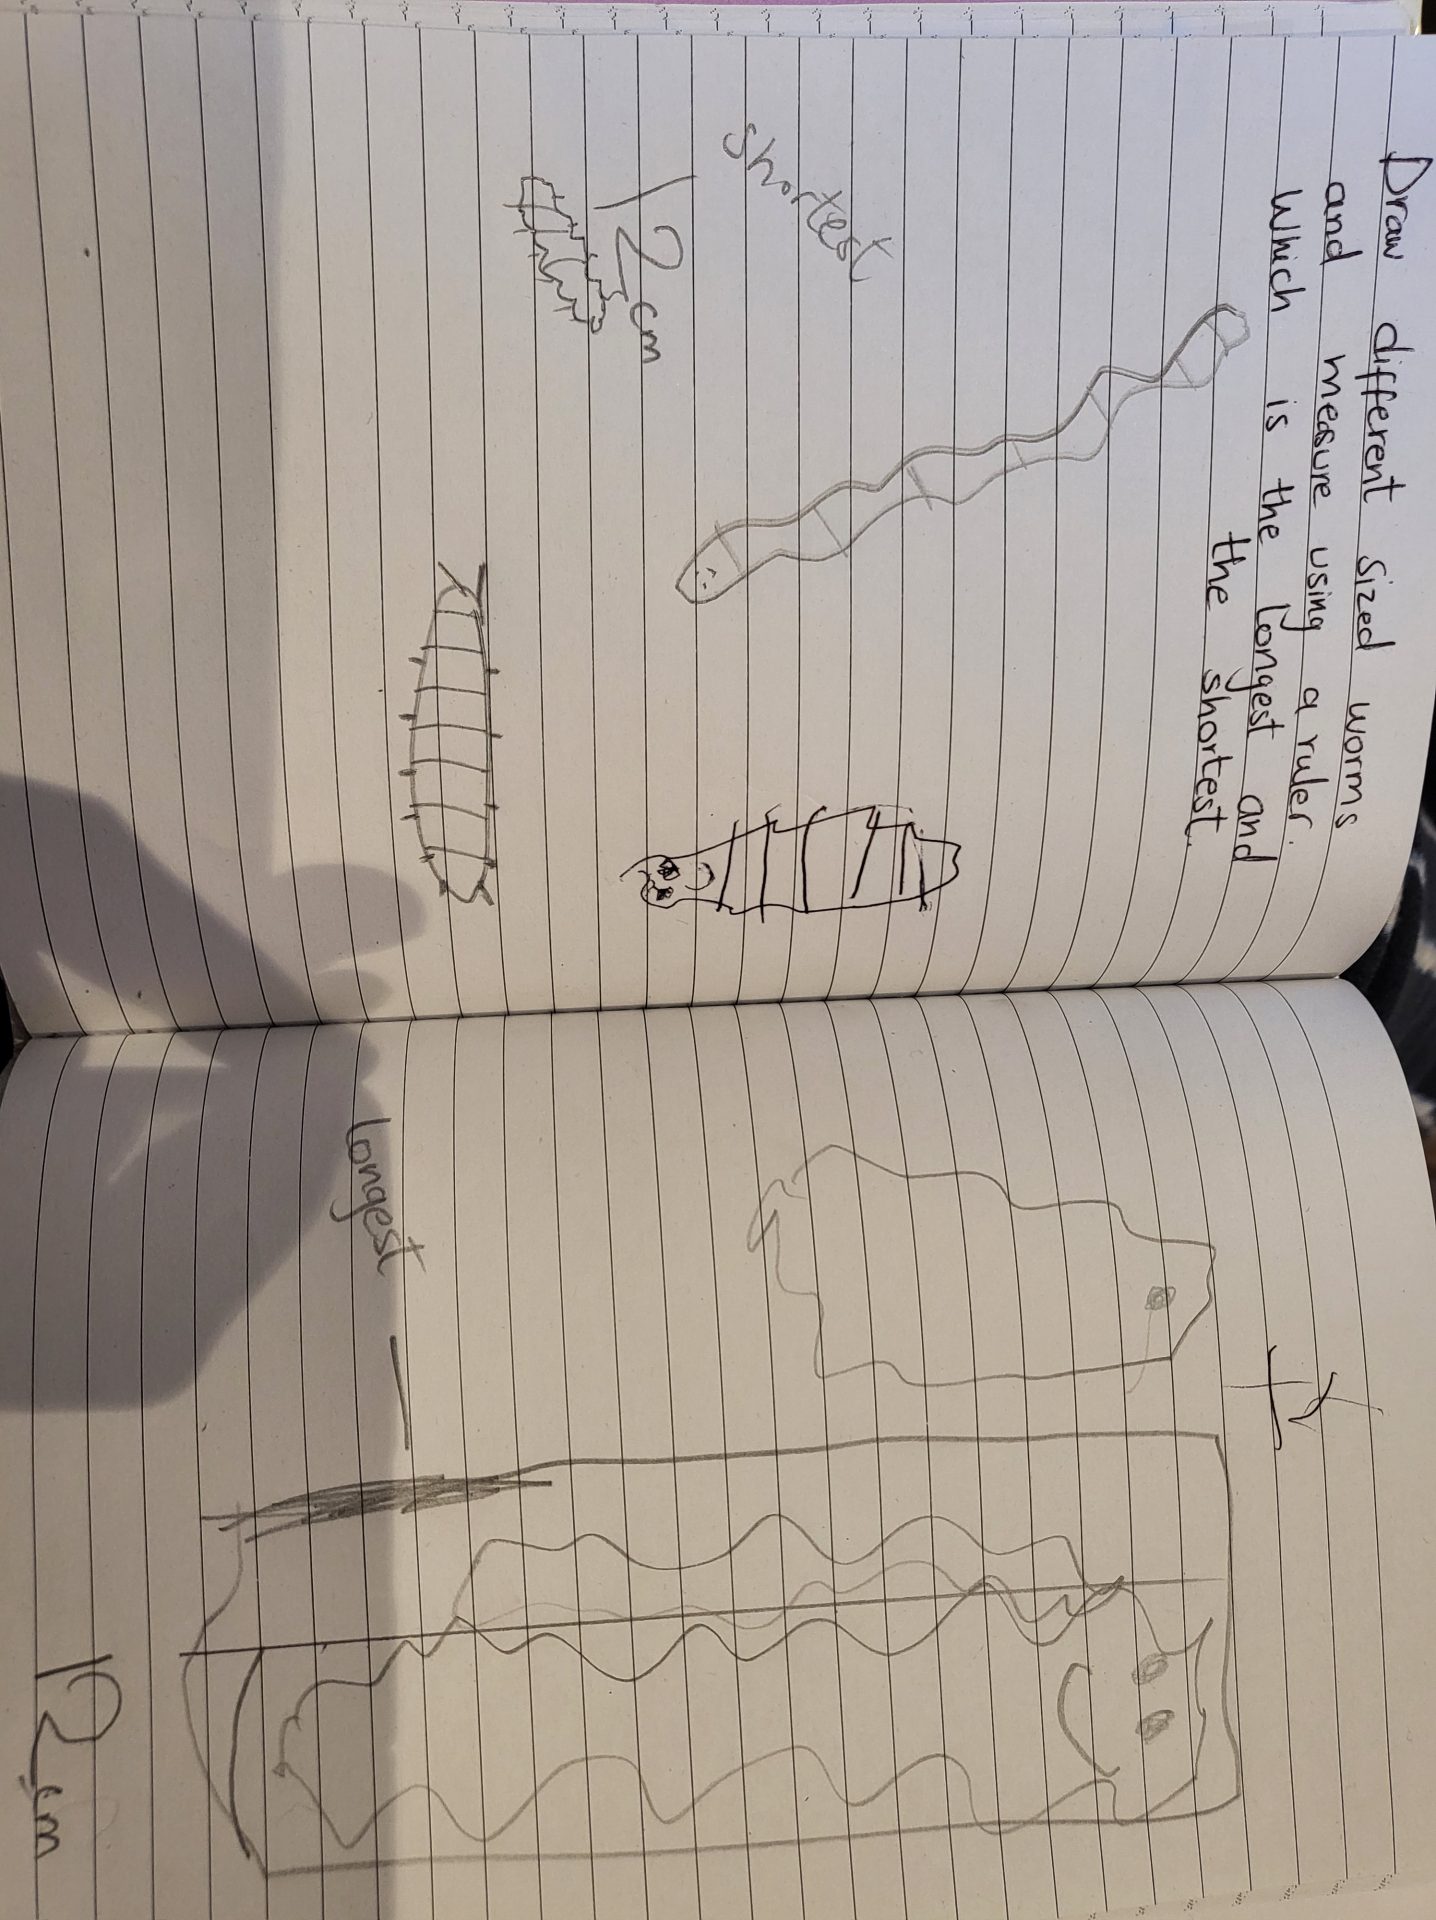 Draw different sized worms
and measure using a ruler.
Which is the longest and
the shortest.
shortest
12cm
longest
12cm